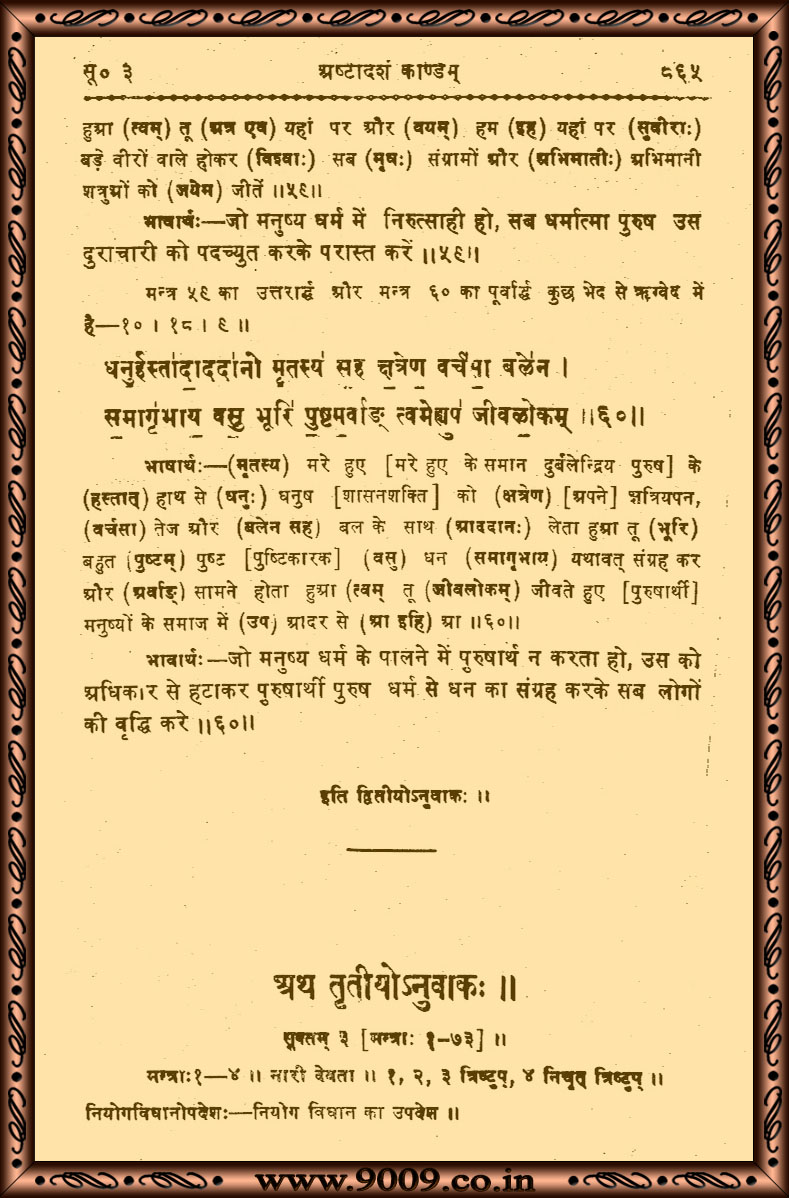 सू० ३ अष्टादशं काण्डम् ८६५
हुआ (त्वम्) तू (अत्र एव) यहां पर और (वयम्) हम (इह) यहां पर (सुवीराः)
बड़े वीरों वाले होकर (विश्वाः) सब (मृधः) संग्रामों और (अभिमातीः) अभिमानी
शत्रुओं को (जयेम) जीतें ॥५९॥
भावार्थः—जो मनुष्य धर्म में निरुत्साही हो, सब धर्मात्मा पुरुष उस
दुराचारी को पदच्युत करके परास्त करें ॥५९॥
मन्त्र ५९ का उत्तरार्द्ध और मन्त्र ६० का पूर्वार्द्ध कुछ भेद से ऋग्वेद में
है—१० । १८ । ९ ॥
धनु॒र्हस्ता॑दा॒ददा॑नो मृ॒तस्य॑ स॒ह क्ष॒त्रेण॒ वर्च॑सा॒ बले॑न ।
स॒मागृ॑भाय॒ वसु॒ भूरि॑ पु॒ष्टम॒र्वाङ् त्वमेह्युप॑ जीवलो॒कम् ॥६०॥
भाषार्थः—(मृतस्य) मरे हुए [मरे हुए के समान दुर्बलेन्द्रिय पुरुष] के
(हस्तात्) हाथ से (धनुः) धनुष [शासनशक्ति] को (क्षत्रेण) [अपने] क्षत्रियपन,
(वर्चसा) तेज और (बलेन सह) बल के साथ (आददानः) लेता हुआ तू (भूरि)
बहुत (पुष्टम्) पुष्ट [पुष्टिकारक] (वसु) धन (समागृभाय) यथावत् संग्रह कर
और (अर्वाङ्) सामने होता हुआ (त्वम् तू (जीवलोकम्) जीवते हुए [पुरुषार्थी]
मनुष्यों के समाज में (उप) आदर से (आ इहि) आ ॥६०॥
भावार्थः—जो मनुष्य धर्म के पालने में पुरुषार्थ न करता हो, उस को
अधिकार से हटाकर पुरुषार्थी पुरुष धर्म से धन का संग्रह करके सब लोगों
की वृद्धि करे ॥६०॥
इति द्वितीयोऽनुवाकः ॥
अथ तृतीयोऽनुवाकः ॥
सूक्तम् ३ [मन्त्राः १-७३] ॥
मन्त्राः१—४ ॥ नारी देवता ॥ १, २, ३ त्रिष्टुप्, ४ निचृत् त्रिष्टुप् ॥
नियोगविधानोपदेशः—नियोग विधान का उपदेश ॥
www.9009.co.in